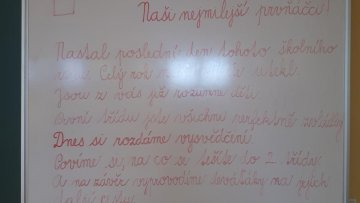 Naši nejmilejší prvňáčci!
Nastal poslední den tohoto školního
roku. Celý rok utekl.
Jsou z vás již rozumné děti.
První třídu jste všichni perfektně zvládli.
Dnes si rozdáme vysvědčení.
Povíme si, na co se těšíte do 2. třídy.
A na závěr vyprovodíme deváťáky na jejich
další cestu.